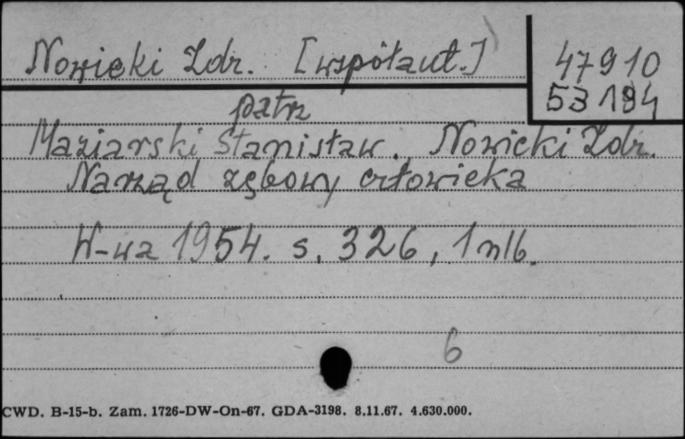 Nowicki Zdz. [współaut.]
47910
53194
patrz
Maziarski Stanisław. Nowicki Zdz.
Narząd zębowy człowieka
W-wa 1954. s. 326, 1 nlb.
6
CWD. B-15-b. Zam. 1726-DW-On-67. GDA-3198. 8.11.67. 4.630.000.